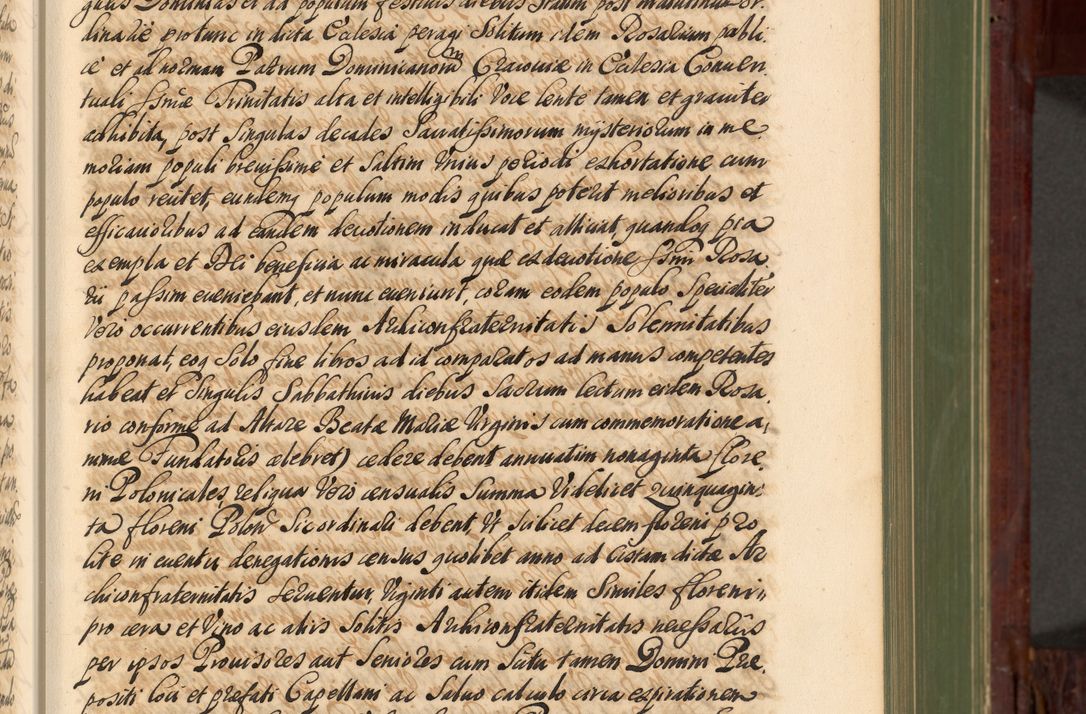 gulis Dominicis et ad populum festivis diebus statim post matutinum or
dinarie protunc in dicta Ecclesia peragi Solitum idem Rosarium publi
cè et ad norman Patrum Dominicanorum Cracoviae in Ecclesia Conven
tuali Ssmae Trinitatis alta et intelligibili Voce lentè tamen et graviter
adhibita, post Singulas decades Sacratissimorum mysteriorum in me
moriam populi brevissimè et Saltim Unius periodi exhortatione cum
populo recitet, eundemq populum modis quibus poterit melioribus et
efficacioribus ad eandem devotionem inducat et alliciat, quandoq pia
exempla et Dei beneficia ac miracula quae ex devotione Ssmi Rosa
rii passim eveniebant, et nunc eveniunt, coram eodem populo Specialiter
Vero occurrentibus eiusdem Archiconfraternitatis Solemnitatibus
proponat, eoq Solo fine libros ad id comparatos ad manus competentes
habeat et Singulis Sabbathinis diebus Sacrum lectum eidem Rosa
rio conforme ad Altare Beatae Mariae Virginis cum commemoratione a,
nimae Fundatoris celebret) cedere debent annuatim nonaginta flore
ni Polonicales reliqua Vero censualis Summa Videlicet quinquagin
ta floreni Polon Sic ordinari debent, Ut scilicet decem floreni pro
lite in eventu denegationis census quolibet anno ad Cistam dictae Ar
chiconfraternitatis Serventur, Viginti autem itidem Similes floreni
pro cera et Vino ac aliis Solitis Archiconfraternitatis necessariis
per ipsos Provisores aut Seniores cum Scitu tamen Domini Prae
positi loci et praefati Capellani ac Salvo calculo circa expirationem